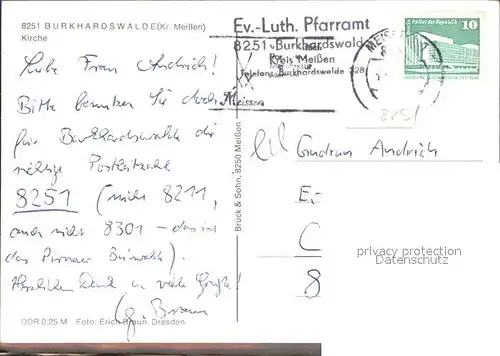 8251 BURKHARDSWALDE (Kr. Meißen)
Kirche
Liebe Frau Andrich!
Bitte benutzen Sie doch
für Burkhardswalde die
richtige Postleitzahl
8251 (nicht 8211,
auch nicht 8301 – das ist
das Pirnaer Bu'walde).
Herzlichen Dank u. viele Grüße!
DDR 0,25 M Foto: Erich Braun, Dresden
Brück & Sohn, 8250 Meißen
Ev.-Luth. Pfarramt
8251 Burkhardswalde
Kreis Meißen
Telefon: Burkhardswalde 328
Meissen
MEISSEN
Palast der Republik
10
8251
Gudrun Andrich
E.-
C
8
privacy protection
Datenschutz